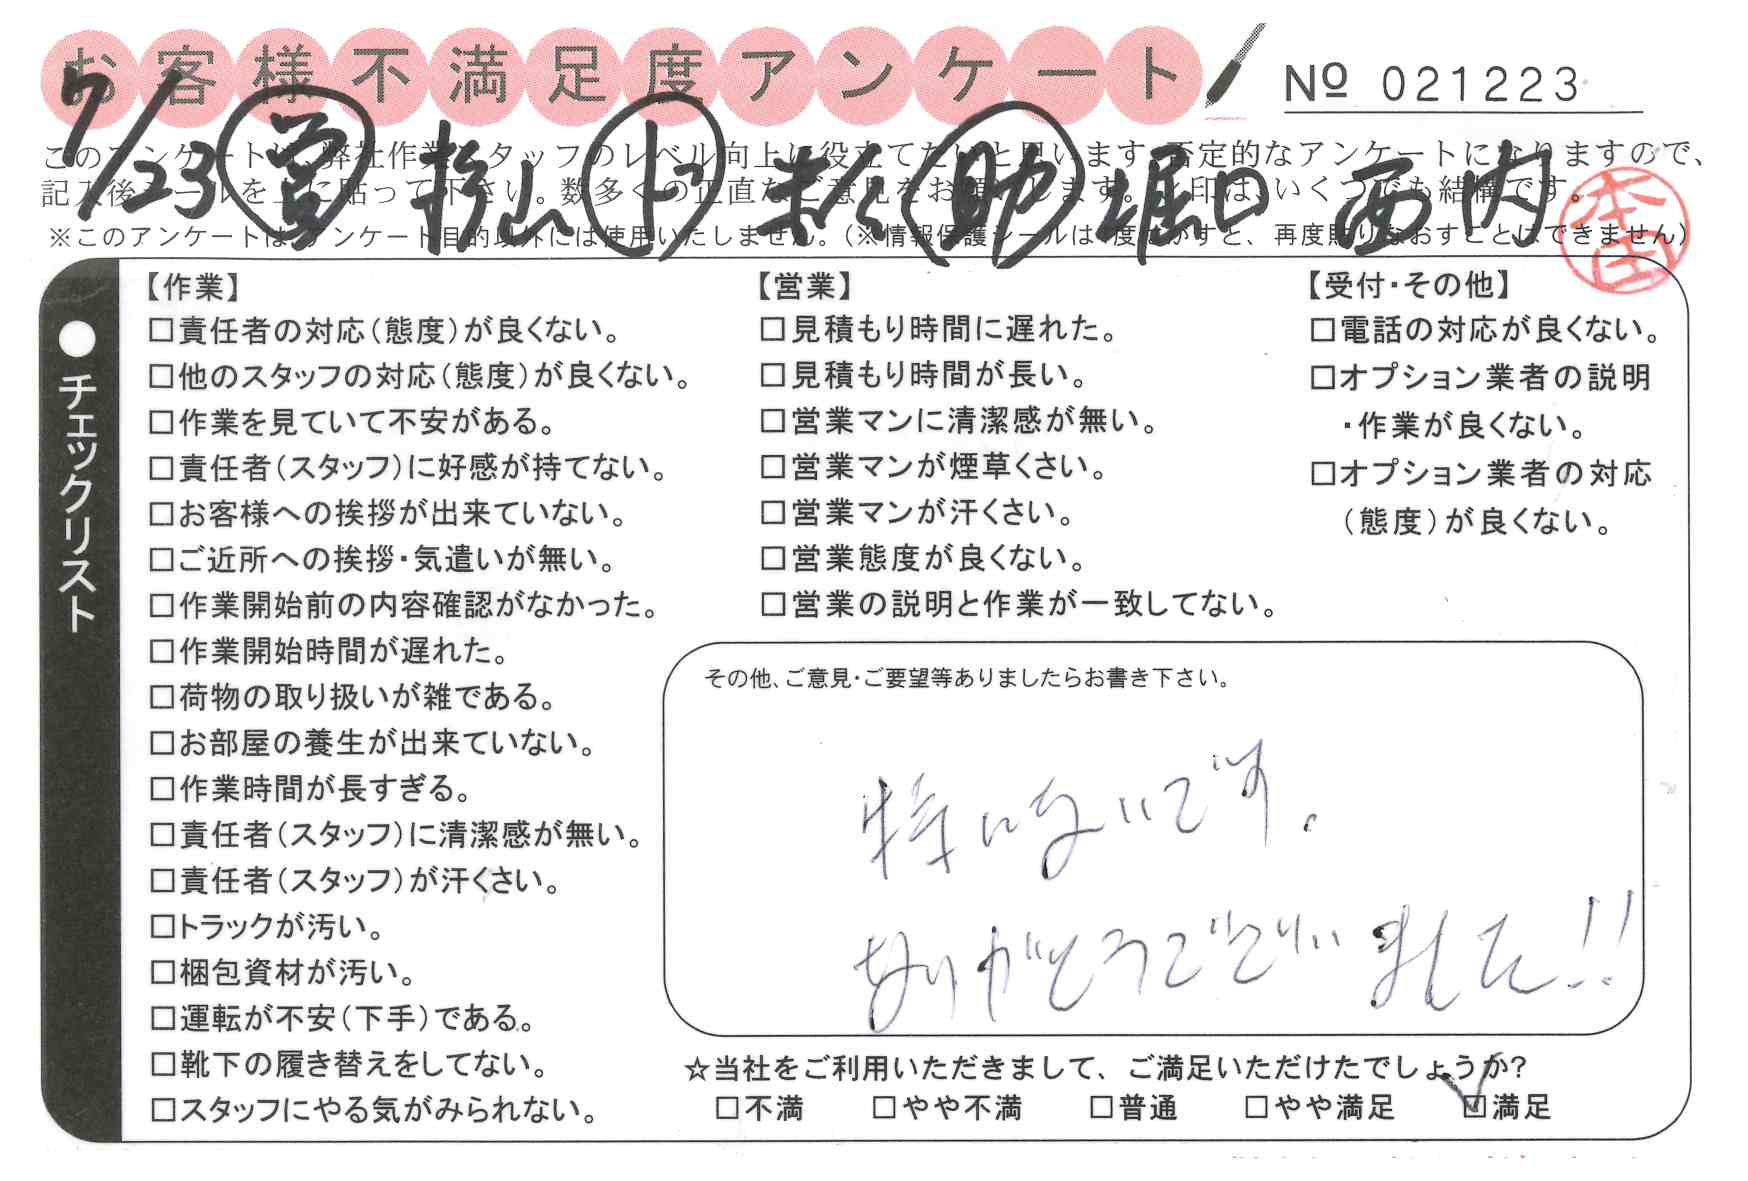 お客様不満足度アンケート
No 021223
7/23 営 杉山 ド 助 堀口 西内
本田
このアンケートは、弊社作業スタッフのレベル向上に役立てたいと思います。否定的なアンケートになりますので、
記入後シールを上に貼って下さい。数多くの正直なご意見をお願いします。レ印は、いくつでも結構です。
※このアンケートは、アンケート目的以外には使用いたしません。（※情報保護シールは1度はがすと、再度貼りなおすことはできません）
●チェックリスト
【作業】
□責任者の対応（態度）が良くない。
□他のスタッフの対応（態度）が良くない。
□作業を見ていて不安がある。
□責任者（スタッフ）に好感が持てない。
□お客様への挨拶が出来ていない。
□ご近所への挨拶・気遣いが無い。
□作業開始前の内容確認がなかった。
□作業開始時間が遅れた。
□荷物の取り扱いが雑である。
□お部屋の養生が出来ていない。
□作業時間が長すぎる。
□責任者（スタッフ）に清潔感が無い。
□責任者（スタッフ）が汗くさい。
□トラックが汚い。
□梱包資材が汚い。
□運転が不安（下手）である。
□靴下の履き替えをしてない。
□スタッフにやる気がみられない。
【営業】
□見積もり時間に遅れた。
□見積もり時間が長い。
□営業マンに清潔感が無い。
□営業マンが煙草くさい。
□営業マンが汗くさい。
□営業態度が良くない。
□営業の説明と作業が一致してない。
【受付・その他】
□電話の対応が良くない。
□オプション業者の説明
・作業が良くない。
□オプション業者の対応
（態度）が良くない。
その他、ご意見・ご要望等ありましたらお書き下さい。
特にないです。
ありがとうございました!!
☆当社をご利用いただきまして、ご満足いただけたでしょうか?
□不満 □やや不満 □普通 □やや満足 ☑満足